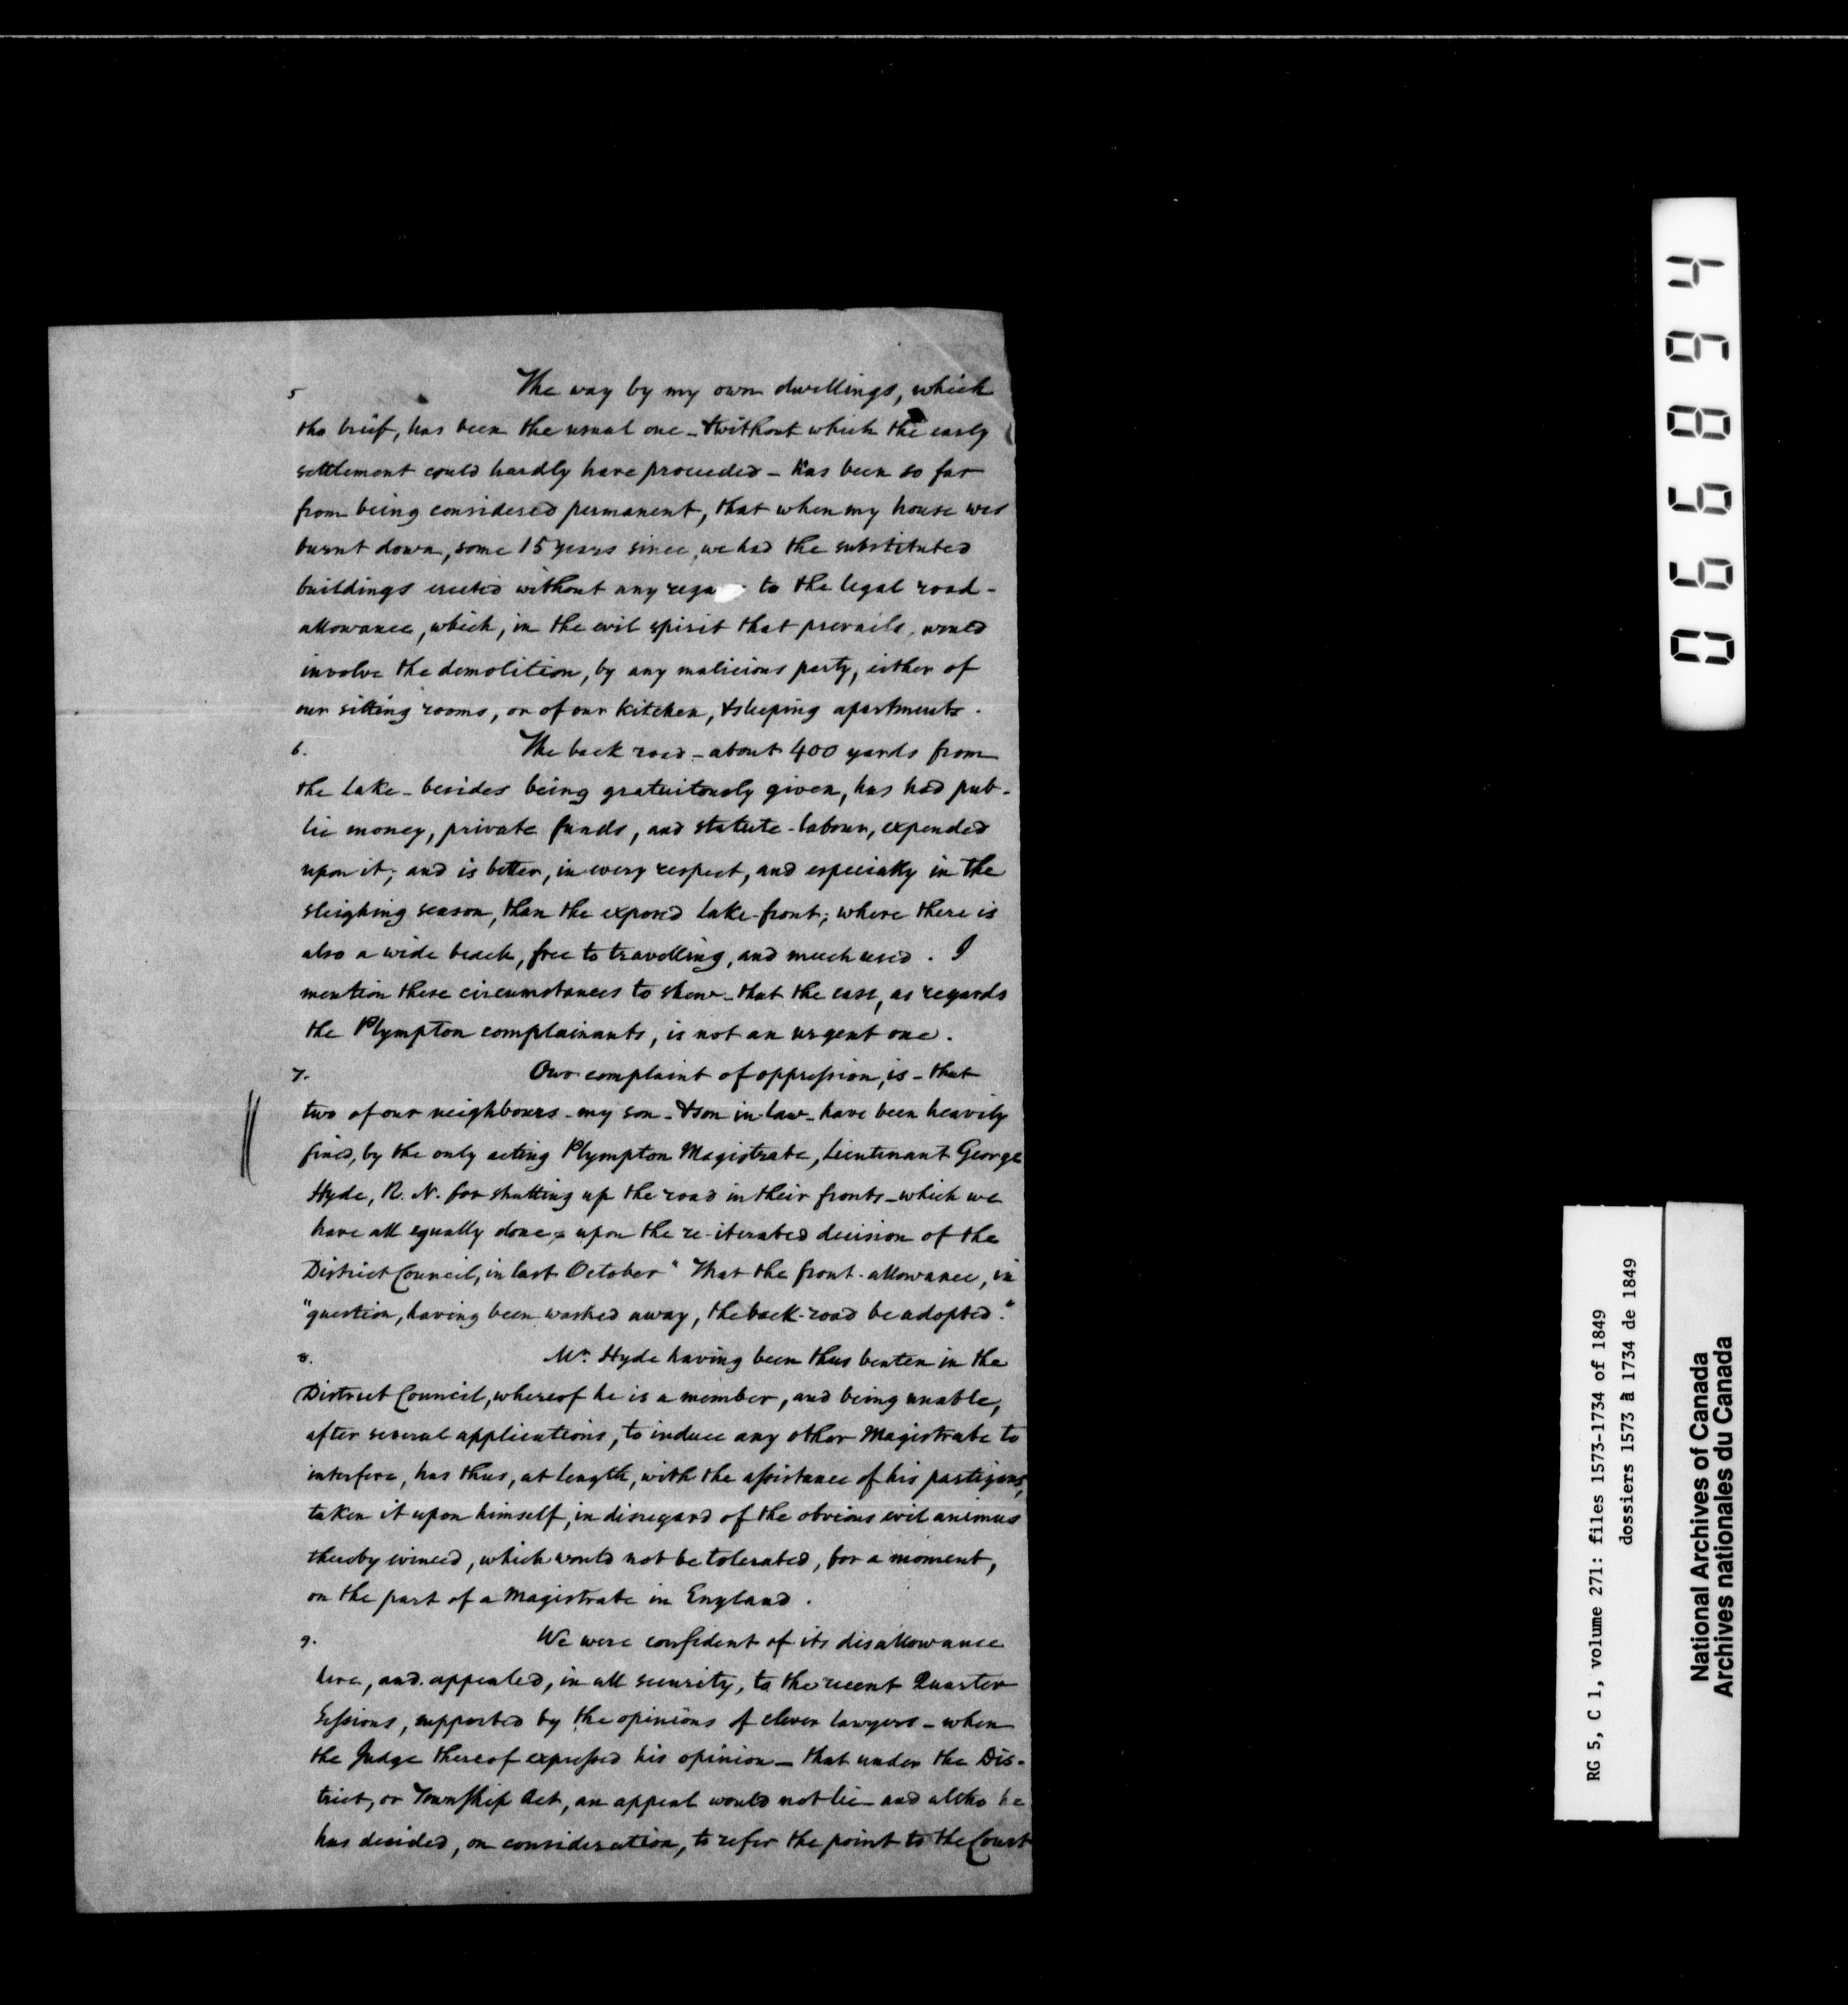 5 The way by my own dwellings, which
tho brief, has been the usual one - & without which the early
settlement could hardly have proceeded - has been so far
from being considered permanent, that when my house was
burnt down, some 15 years since, we had the substituted
buildings erected without any rega to the legal road-
allowance, which, in the evil spirit that prevails, would
involve the demolition, by any malicious party, either of
our sitting rooms, or of our kitchen, & sleeping apartments.
6. The back road - about 400 yards from
the lake - besides being gratuitously given, has had pub-
lic money, private funds, and statute-labour, expended
upon it; and is better, in every respect, and especially in the
sleighing season, than the exposed lake-front; where there is
also a wide beach, free to travelling, and much used. I
mention these circumstances to shew - that the case, as regards
the Plympton complainants, is not an urgent one.
7. Our complaint of oppression, is - that
two of our neighbours - my son - & son in-law - have been heavily
fined, by the only acting Plympton Magistrate, Lieutenant George
Hyde, R. N. for shutting up the road in their fronts - which we
have all equally done - upon the re-iterated decision of the
District Council, in last October "That the front-allowance, in
"question, having been washed away, the back-road be adopted."
8. Mr. Hyde having been thus beaten in the
District Council, whereof he is a member, and being unable,
after several applications, to induce any other Magistrate to
interfere, has thus, at length, with the assistance of his partizans,
taken it upon himself, in disregard of the obvious evil animus
thereby evinced, which would not be tolerated, for a moment,
on the part of a Magistrate in England.
9. We were confident of its disallowance
here, and appealed, in all security, to the recent Quarter
Sessions, supported by the opinions of clever lawyers - when
the Judge thereof expressed his opinion - that under the Dis-
trict, or Township Act, an appeal would not lie - and altho he
has decided, on consideration, to refer the point to the Court
066894
RG 5, C 1, volume 271: files 1573-1734 of 1849
dossiers 1573 à 1734 de 1849
National Archives of Canada
Archives nationales du Canada